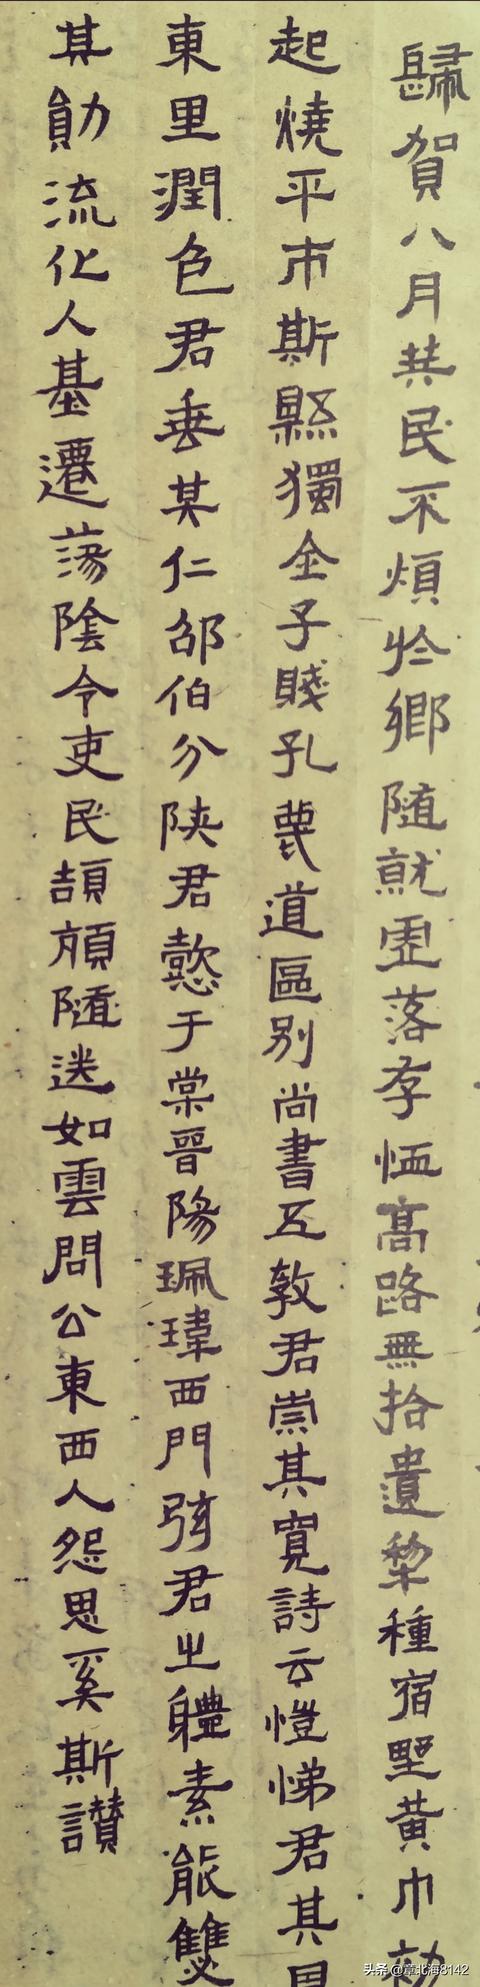 歸賀八月共民不煩於鄉隨就虛落存恤高路無拾遺犂種宿野黃巾
起燒平市斯縣獨全子賤孔蔑道區別尚書五教君崇其寬詩云愷悌君其
東里潤色君垂其仁邵伯分陝君懿于棠晉陽珮瑋西門弦君之體素能雙
其勛流化人基遷蕩陰令吏民頡頏隨送如雲問公東西人怨思奚斯讚
头条 @章北海8142